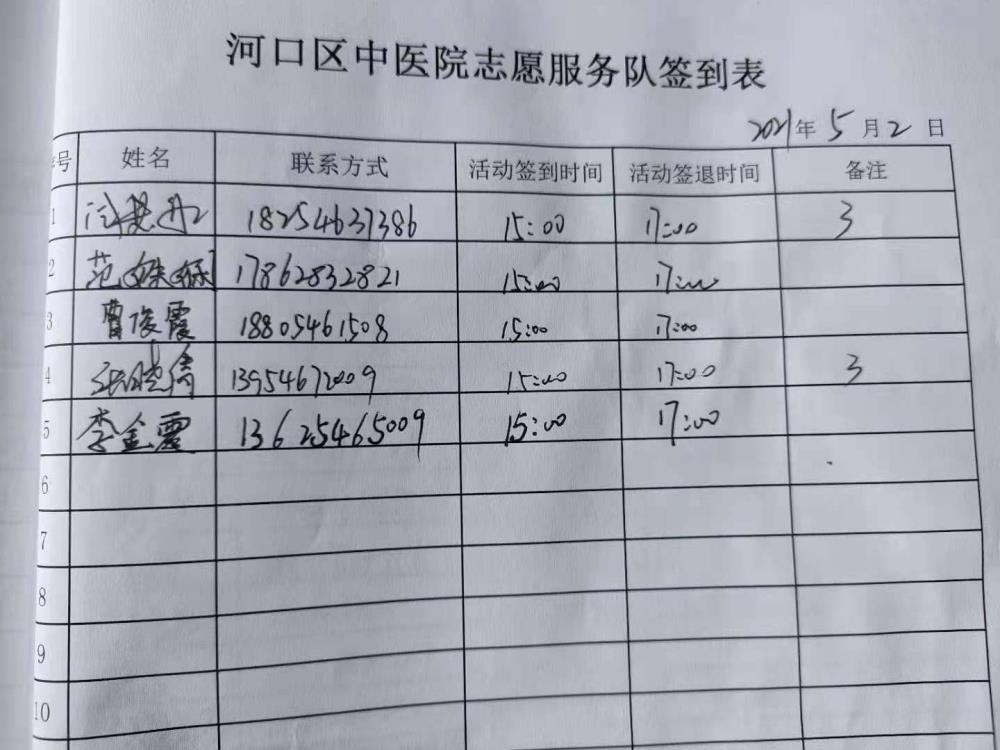 河口区中医院志愿服务队签到表
2021年5月2日
号 姓名 联系方式 活动签到时间 活动签退时间 备注
1 18254637386 15:00 17:00 3
2 范 17862832821 15:00 17:00
3 曹俊霞 18805461508 15:00 17:00
4 张晓倩 13954672009 15:00 17:00 3
5 李金震 13625465009 15:00 17:00
6
7
8
9
10